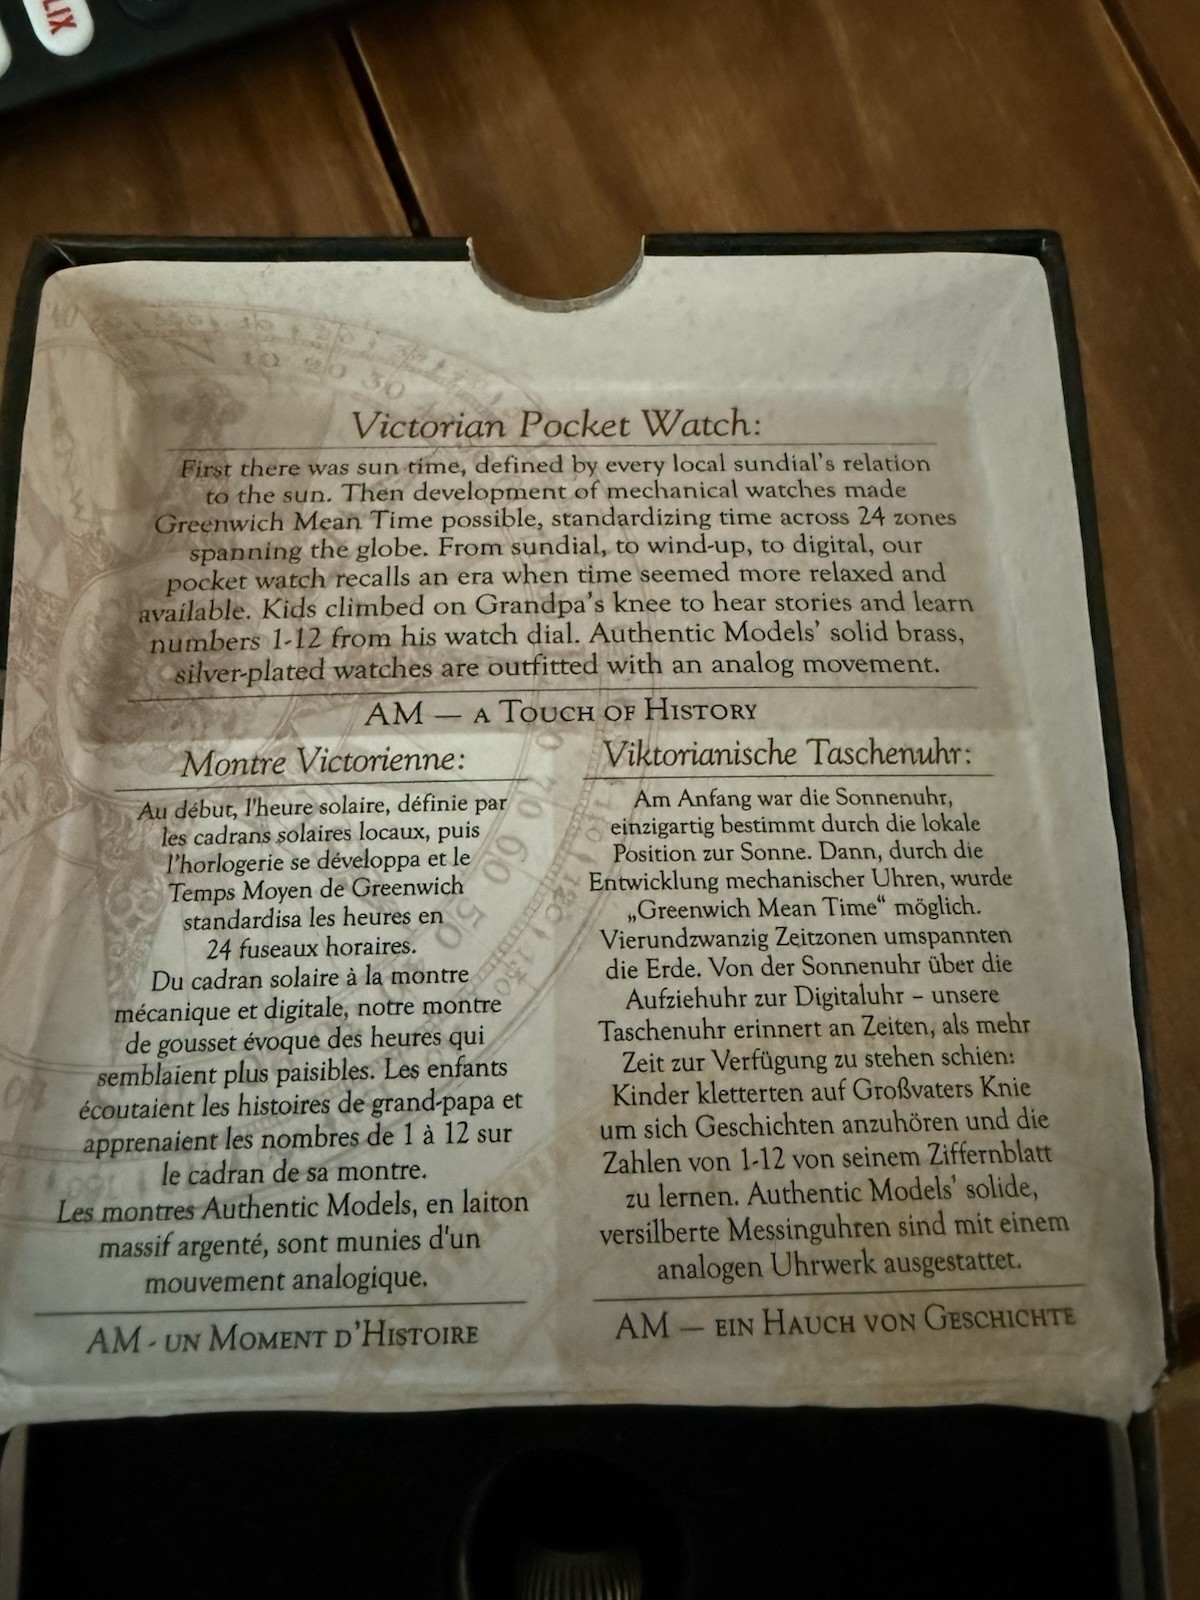 LIX
Victorian Pocket Watch:
First there was sun time, defined by every local sundial's relation
to the sun. Then development of mechanical watches made
Greenwich Mean Time possible, standardizing time across 24 zones
spanning the globe. From sundial, to wind-up, to digital, our
pocket watch recalls an era when time seemed more relaxed and
available. Kids climbed on Grandpa's knee to hear stories and learn
numbers 1-12 from his watch dial. Authentic Models' solid brass,
silver-plated watches are outfitted with an analog movement.
AM — A TOUCH OF HISTORY
Montre Victorienne:
Au début, l'heure solaire, définie par
les cadrans solaires locaux, puis
l'horlogerie se développa et le
Temps Moyen de Greenwich
standardisa les heures en
24 fuseaux horaires.
Du cadran solaire à la montre
mécanique et digitale, notre montre
de gousset évoque des heures qui
semblaient plus paisibles. Les enfants
écoutaient les histoires de grand-papa et
apprenaient les nombres de 1 à 12 sur
le cadran de sa montre.
Les montres Authentic Models, en laiton
massif argenté, sont munies d'un
mouvement analogique.
AM - UN MOMENT D'HISTOIRE
Viktorianische Taschenuhr:
Am Anfang war die Sonnenuhr,
einzigartig bestimmt durch die lokale
Position zur Sonne. Dann, durch die
Entwicklung mechanischer Uhren, wurde
„Greenwich Mean Time“ möglich.
Vierundzwanzig Zeitzonen umspannten
die Erde. Von der Sonnenuhr über die
Aufziehuhr zur Digitaluhr – unsere
Taschenuhr erinnert an Zeiten, als mehr
Zeit zur Verfügung zu stehen schien:
Kinder kletterten auf Großvaters Knie
um sich Geschichten anzuhören und die
Zahlen von 1-12 von seinem Ziffernblatt
zu lernen. Authentic Models' solide,
versilberte Messinguhren sind mit einem
analogen Uhrwerk ausgestattet.
AM — EIN HAUCH VON GESCHICHTE
N 10 20 30
70 60 50